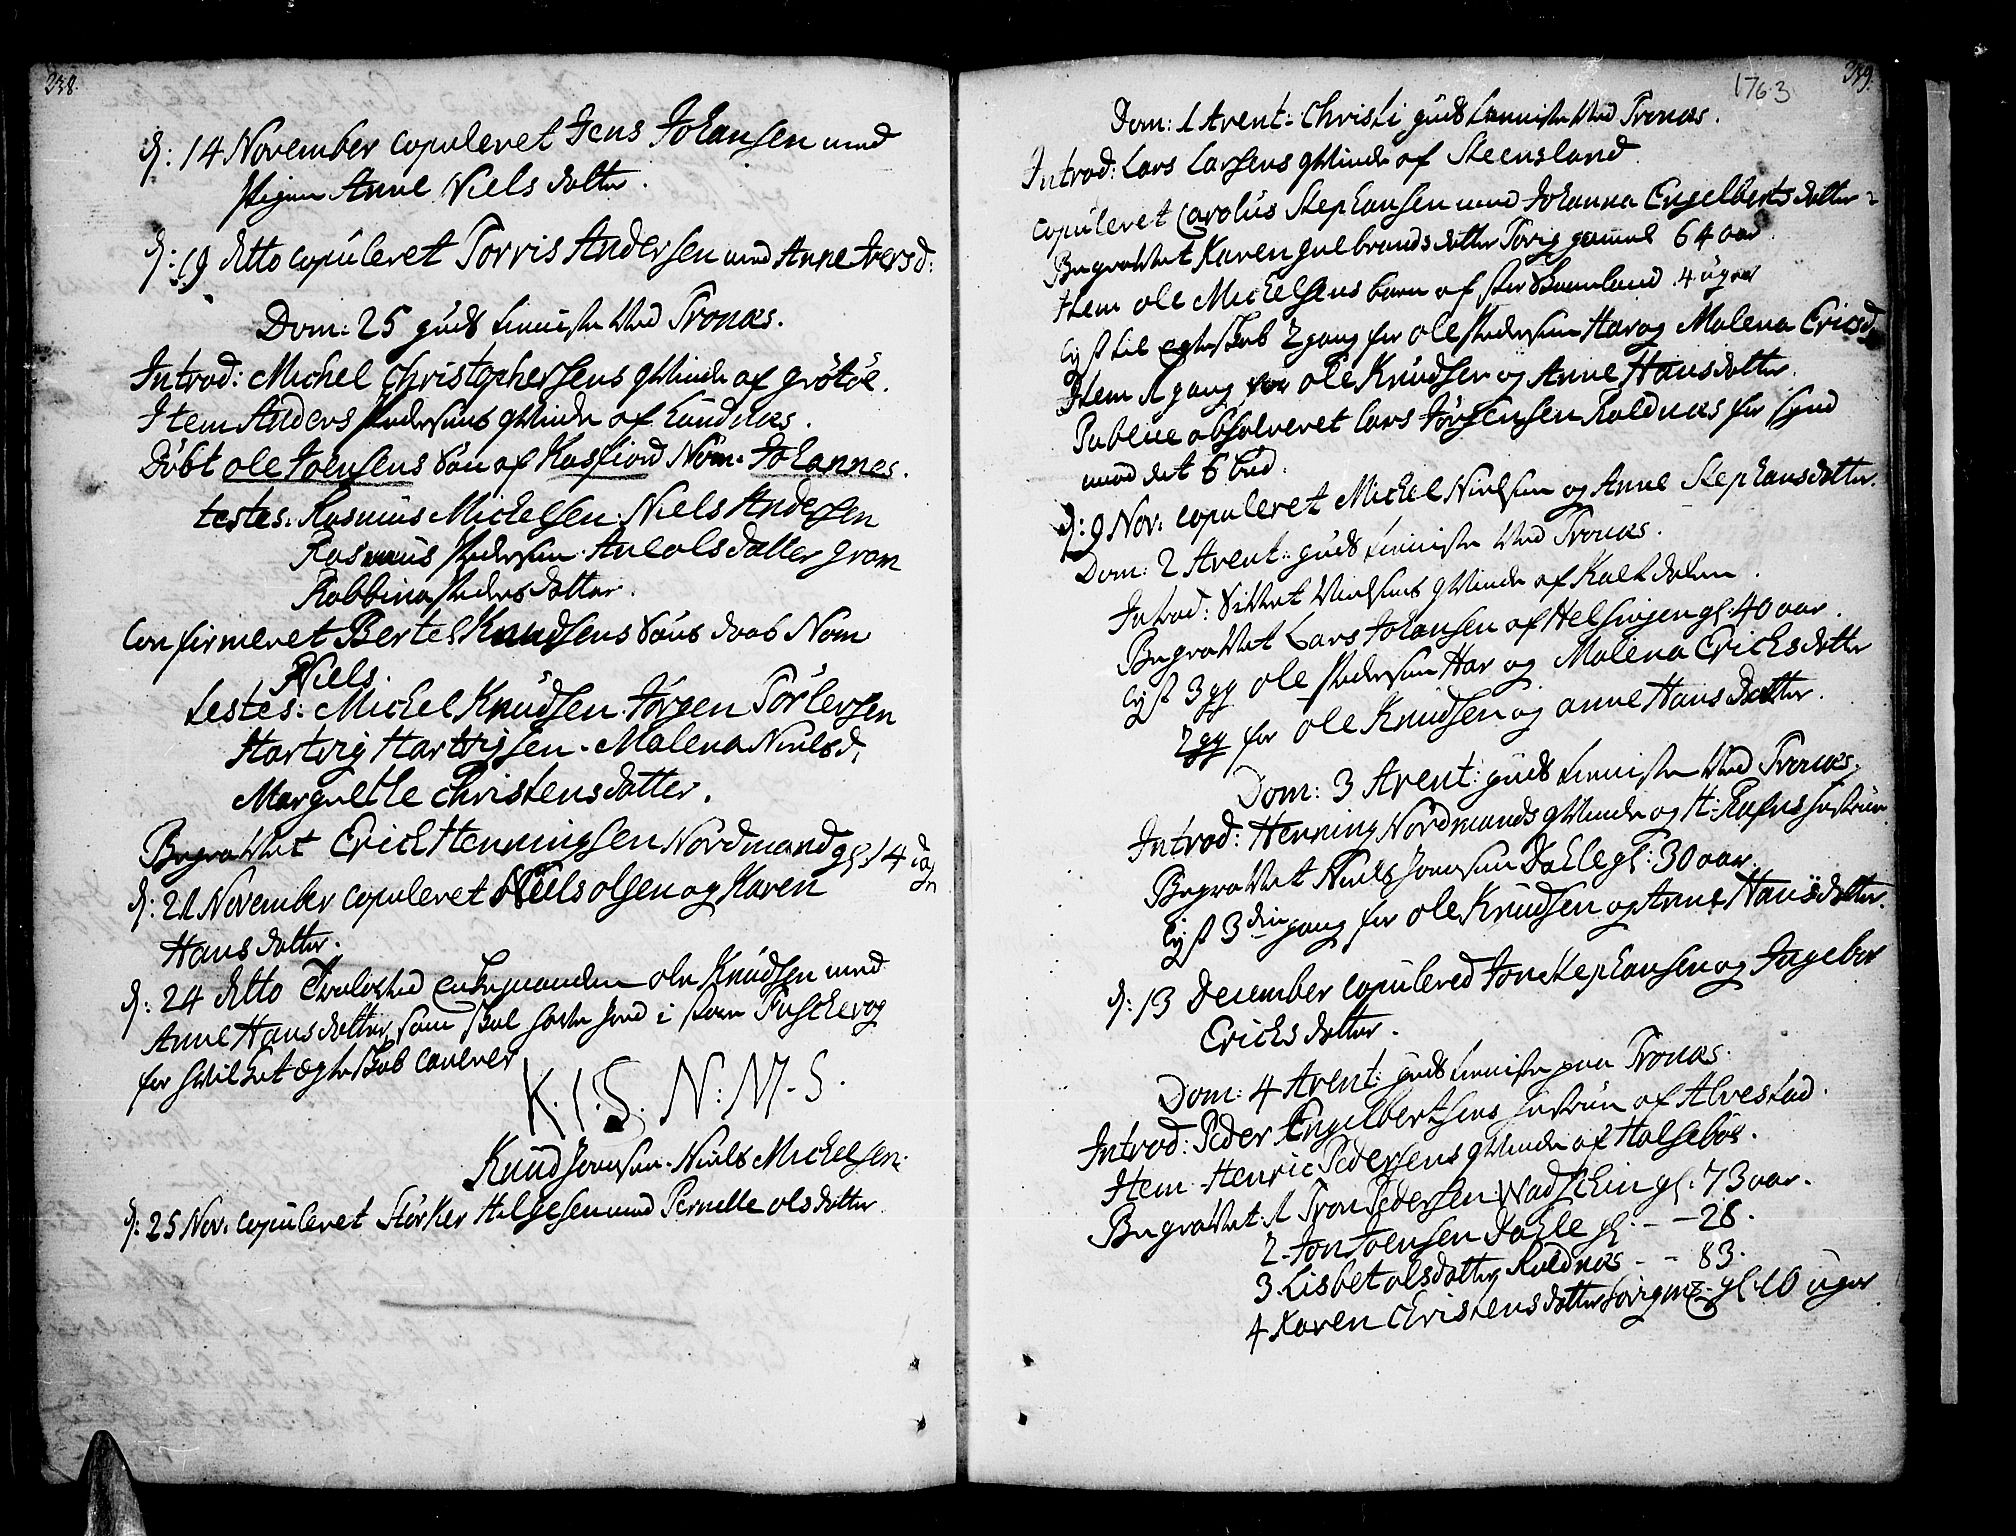 238.
d: 14 November copuleret Jens Johansen med
Pigen Anne Niels datter.
d: 19 dito copuleret Torris Andersen med Anne Iversd:
Dom: 25 guds tienniste Ved Tronæs.
Introd: Michel Christophersens qVinde af grötöe.
Item Anders Pedersens qVinde af Sandnæs.
Döbt ole Joensens Sön af Kasfiord Nom. Johannes.
testes: Rasmus Michelsen. Niels Andersen
Rasmus Pedersen. Ane olsdatter gram
Robbina Pedersdatter.
Confirmeret Bertel Knudsens Söns daab Nom
Niels.
testes: Michel Knudsen. Jörgen Törlersen
Hartvig Hartvigsen. Malena Nielsd,
Margrethe Christensdatter.
BegraVet Erich Henningsen Nordmand gl. 14 dage
d: 21 November copuleret Niels olsen og Karen
Hansdatter.
d: 24 dito TroloVed Enkemanden ole Knudsen med
Anne Hansdatter, som skal have Jord i store Fuskevog
for hVilket ægteskab caverer
K. I. S. N: M. S.
Knud Jonsen. Niels Michelsen.
d: 25 Nov. copuleret Störker Helgesen med Pernille olsdatter
1763
239.
Dom: 1 Avent: Christi guds tienniste Ved Tronæs.
Introd: Lars Larsens qVinde af Steensland
copuleret Carolus Stephansen med Johanna Engelbertsdatter
BegraVet Karen gulbrandsdatter Torig gamel 64 aar.
Item ole Michelsens barn af 4 uger
lyst til Egteskab 2 gang for ole Pedersen Har og Malena Ericsd
Item 1 gang for ole Knudsen og Anne Hansdatter.
Publice absolveret Lars Jörgensen Roldnæs for synd
mod det 6 bud.
d: 9 Nov. copuleret Michel Nielsen og Anne Stephansdatter.
Dom: 2 Avent: guds tienniste Ved Tronæs.
Introd: SiVert Nielsens qVinde af Kaltdalen.
BegraVet Lars Johansen af Helsingen gl. 40 aar.
lyst 3 gg ole Pedersen Har og Malena Erichsdatter
2 gg for ole Knudsen og anne Hansdatter.
Dom: 3 Avent: guds tienniste Ved Tronæs.
Introd: Henning Nordmands qVinde og H: Rafns Hustrue.
BegraVet Niels Jonesen Dahle gl: 30 aar.
lyst 3die gang for ole Knudsen og Anne Hansdatter.
d: 13 December copulered Jon Stephansen og Ingebor
Erichsdatter.
Dom: 4 Avent: guds tienniste paa Tronæs.
Introd: Peder Engelbertsens hustrue af Alvestad.
Item Henric Pedersens qVinde af Halseböe.
BegraVet: 1 Tron Pedersen Wadschin gl. 73 aar.
2. Jon Joensen Dahle gl: - - 28.
3. Lisbet olsdatter Roldnæs - - 83.
4 Karen Christensdatter gl 10 uger